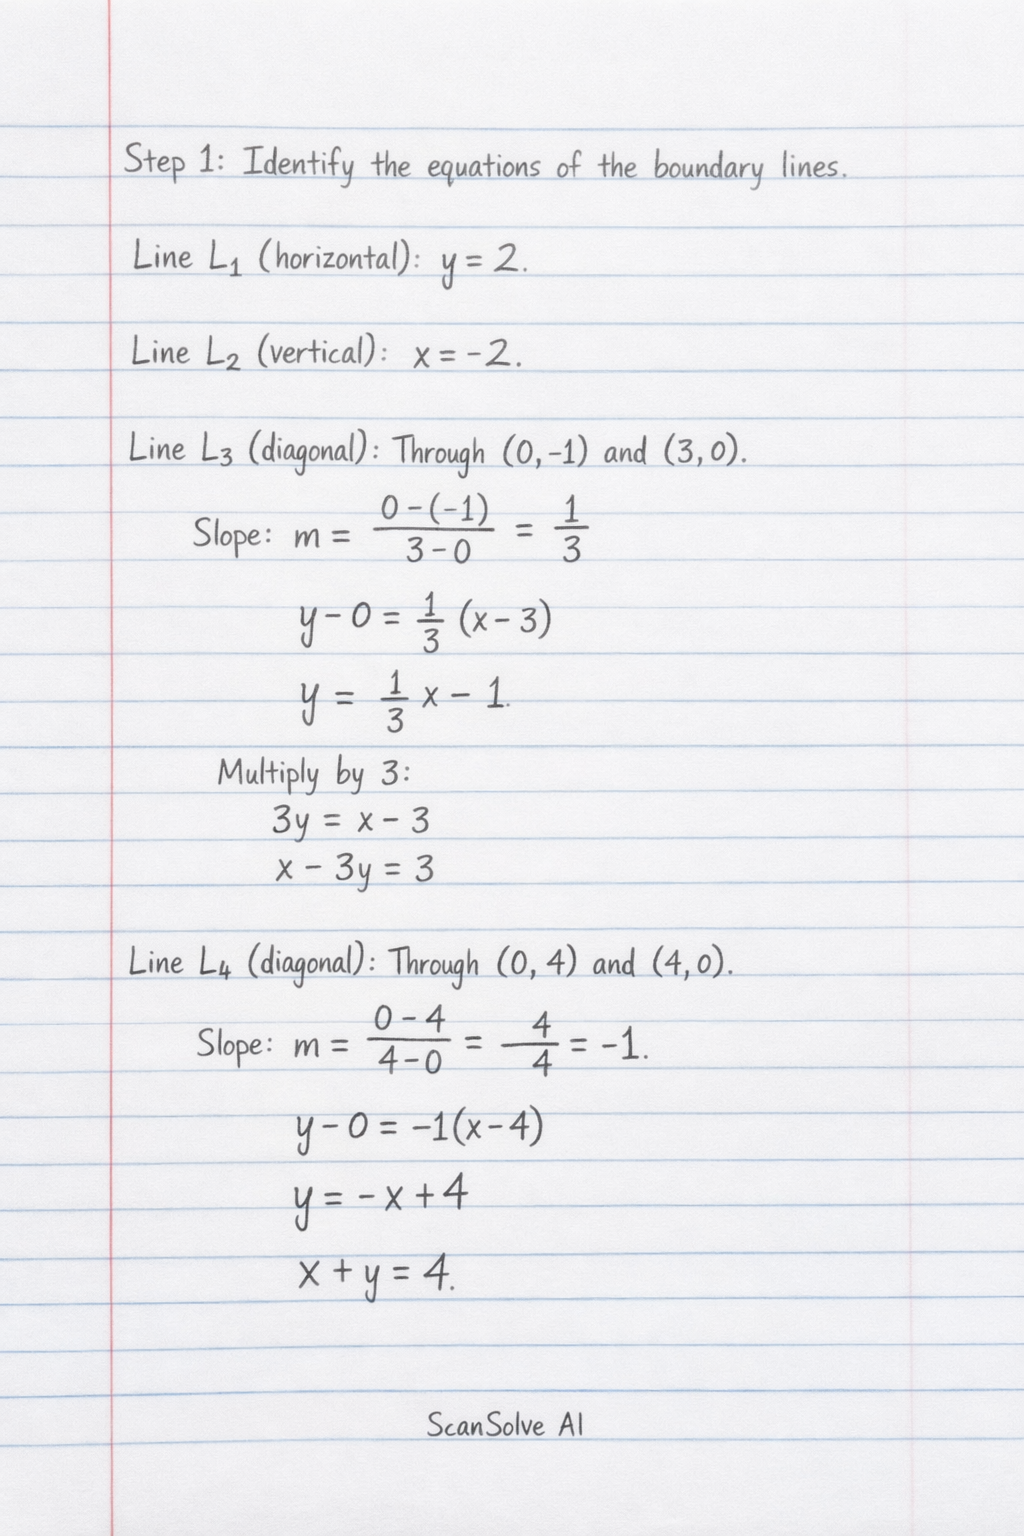 Step 1: Identify the equations of the boundary lines.
Line L₁ (horizontal): y = 2.
Line L₂ (vertical): x = -2.
Line L₃ (diagonal): Through (0,-1) and (3,0).
Slope: m = \frac{0-(-1)}{3-0} = \frac{1}{3}
y - 0 = \frac{1}{3} (x - 3)
y = \frac{1}{3} x - 1.
Multiply by 3:
3y = x - 3
x - 3y = 3
Line L₄ (diagonal): Through (0, 4) and (4,0).
Slope: m = \frac{0-4}{4-0} = \frac{4}{4} = -1.
y - 0 = -1(x-4)
y = -x + 4
x + y = 4.
ScanSolve AI